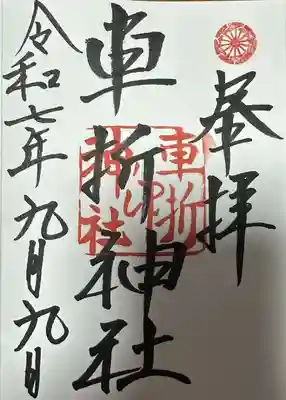 奉拝
車折神社
令和七年九月九日
車折
神社